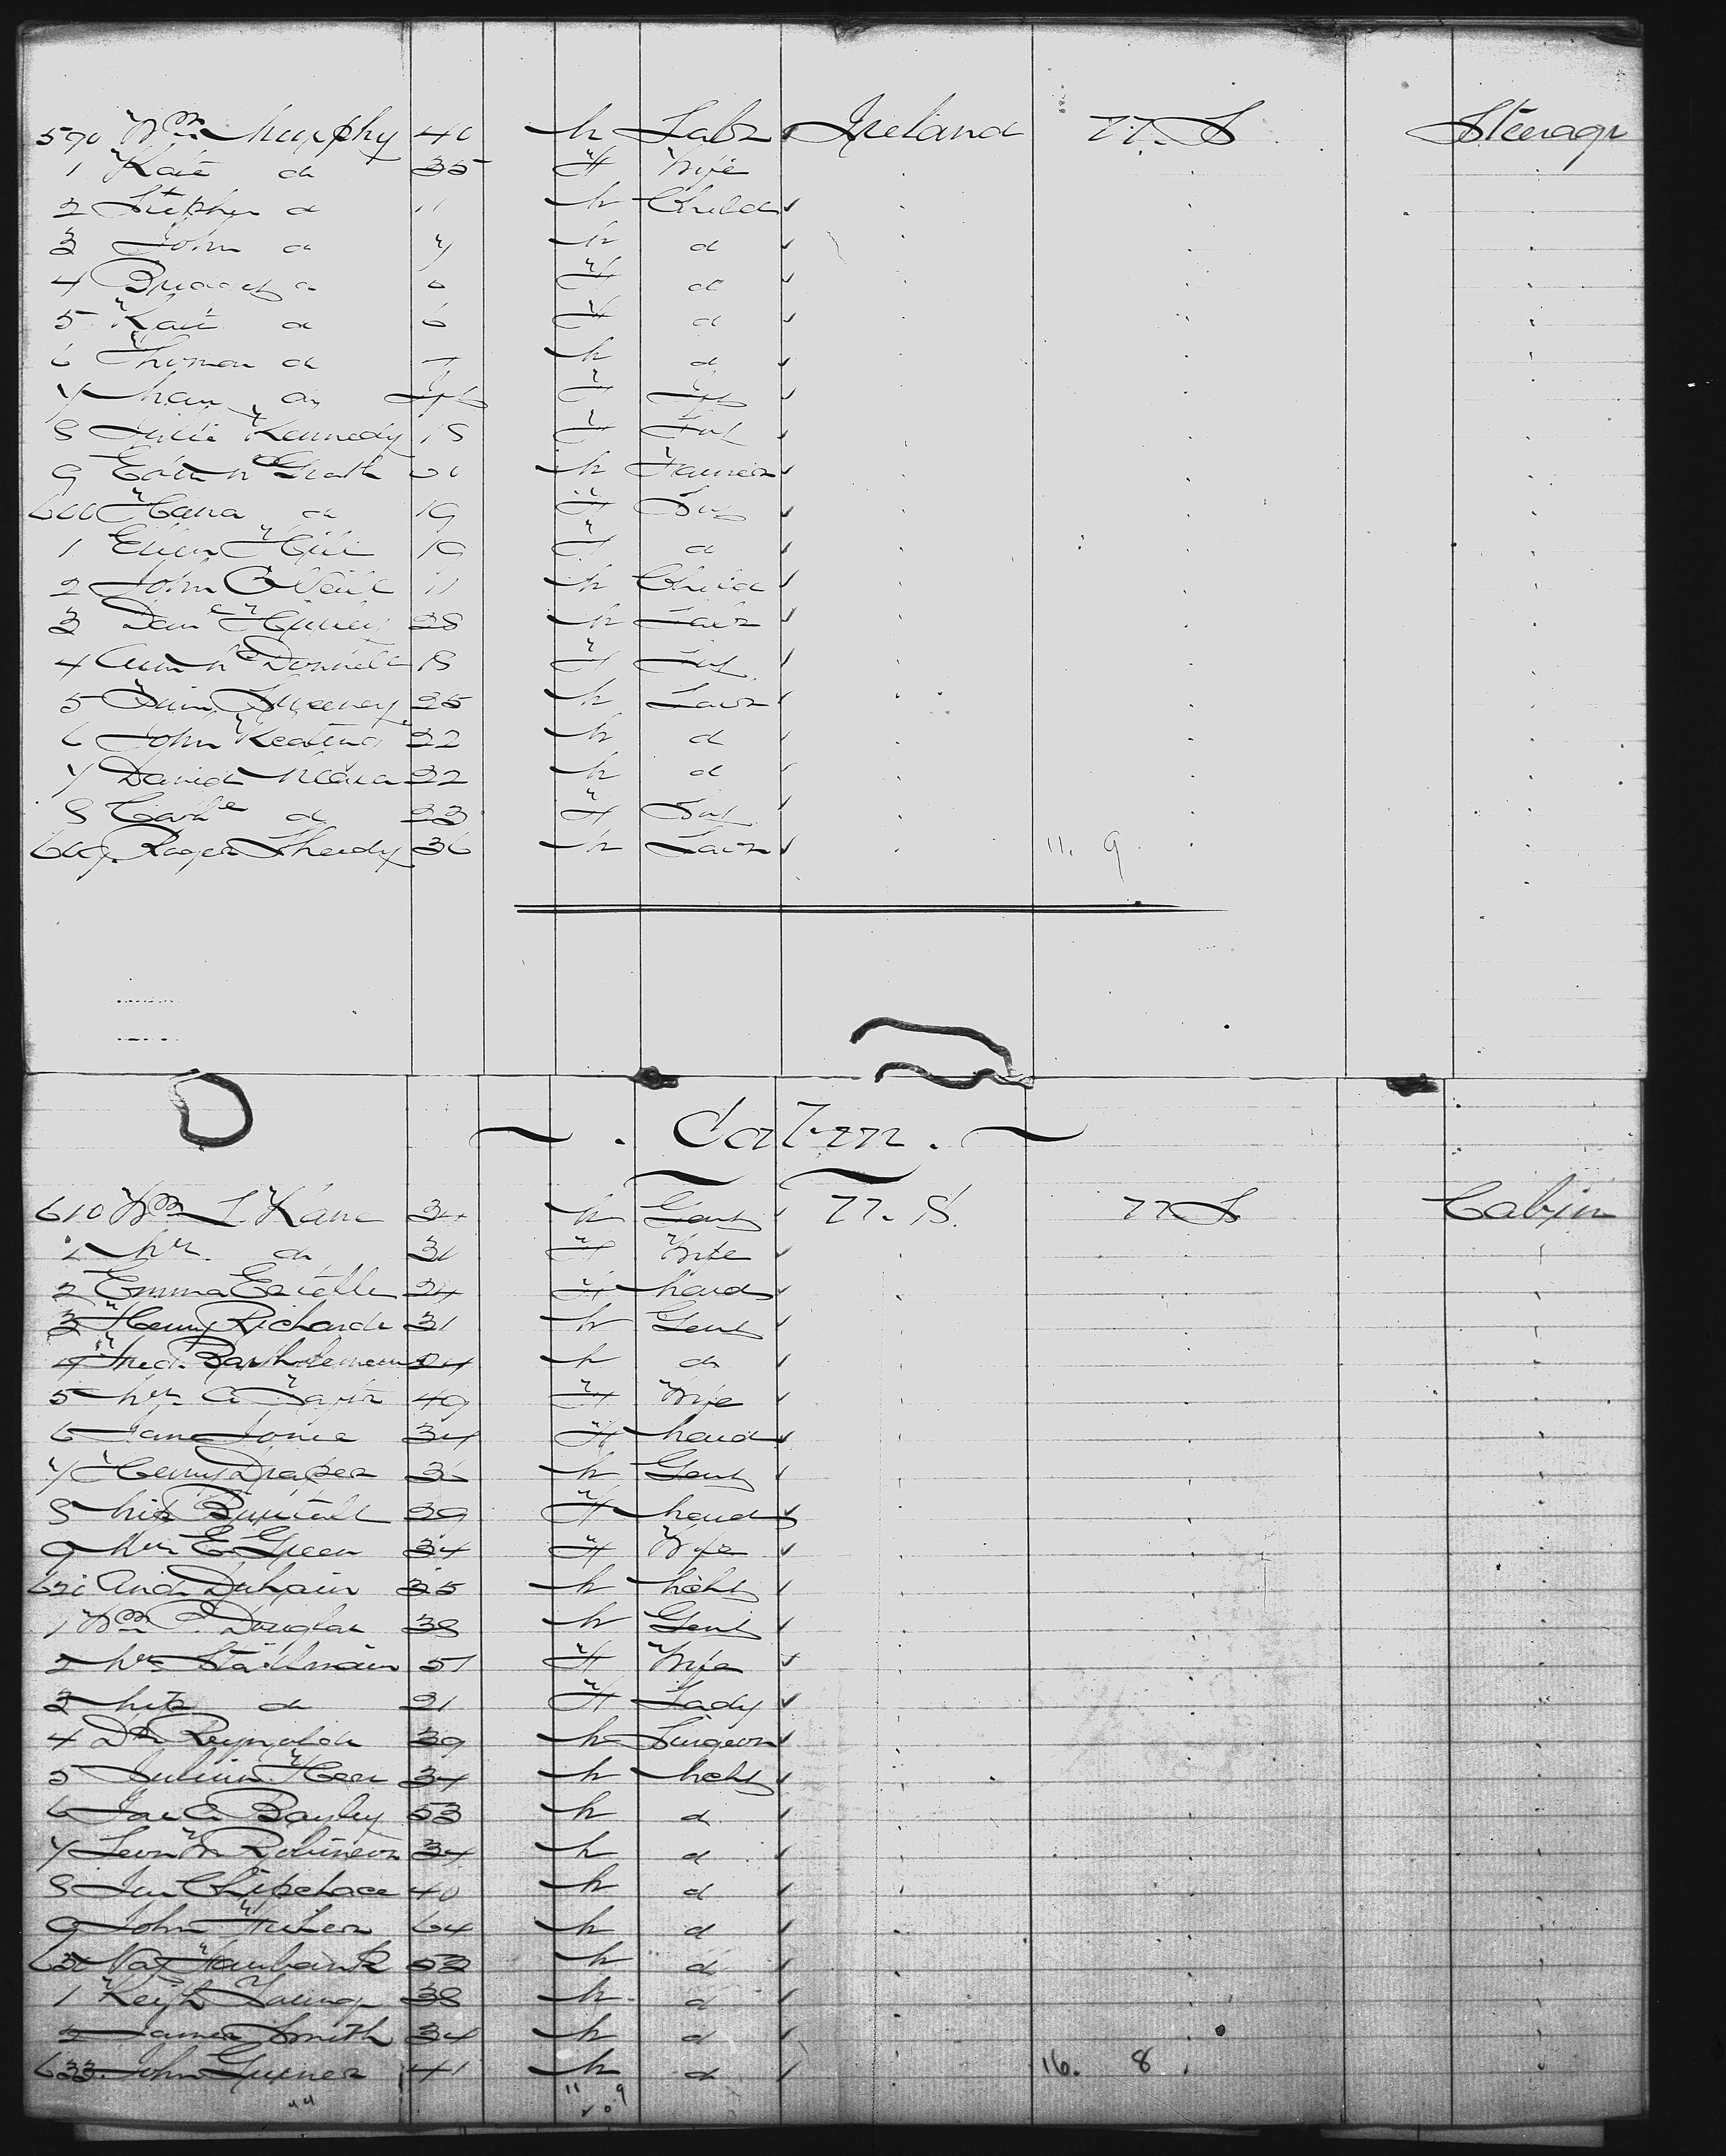 590 Wm Murphy 40 M Labr Ireland U.S Steerage
1 Kate do 35 F Wife
2 Stephen do 11 M Child
3 John do 7 M do
4 Bridget do F do
5 Kate do 6 F do
6 Thomas do M do
7 Mary do Inft F Inft
8 Julia Kennedy 18 F Svt
9 Edw McGrath M Farmer
600 Hana do 19 F Svt
1 Ellen 19 F do
2 John O'Neill 11 M Child
3 Danl 28 M Labr
4 Ann McDonnell 18 F Svt
5 Sweeney 25 M Labr
6 John Keating 22 M do
7 David Meara 22 M do
8 Cathe do 23 F Svt
609 Roger Sheedy 36 M Labr 11. 9
Cabin.
610 Wm L Kane 34 M Gent U.S. U.S Cabin
1 Mrs do 31 F Wife
2 Emma 24 F Maid
3 Henry Richards 31 M Gent
4 Fred. Bartholemew 24 M do
5 Mrs A 49 F Wife
6 Jane Jones 34 F Maid
7 Henry Draper 36 M Gent
8 Miss 29 F Maid
9 Mrs E Green 34 F Wife
620 And Duhain 35 M Mcht
1 Wm P. Douglas 38 M Gent
2 Mrs 51 F Wife
3 Miss do 21 F Lady
4 Dr Reynolds 39 M Surgeon
5 Julius 34 M Mcht
6 Jas A Bayley 53 M do
7 Leon W Robinson 34 M do
8 Chipchace 40 M do
9 John 64 M do
630 Nat Fairbank 52 M do
1 Keith Young 38 M do
2 James Smith 34 M do
633. John 41 M do 16. 8
11 9